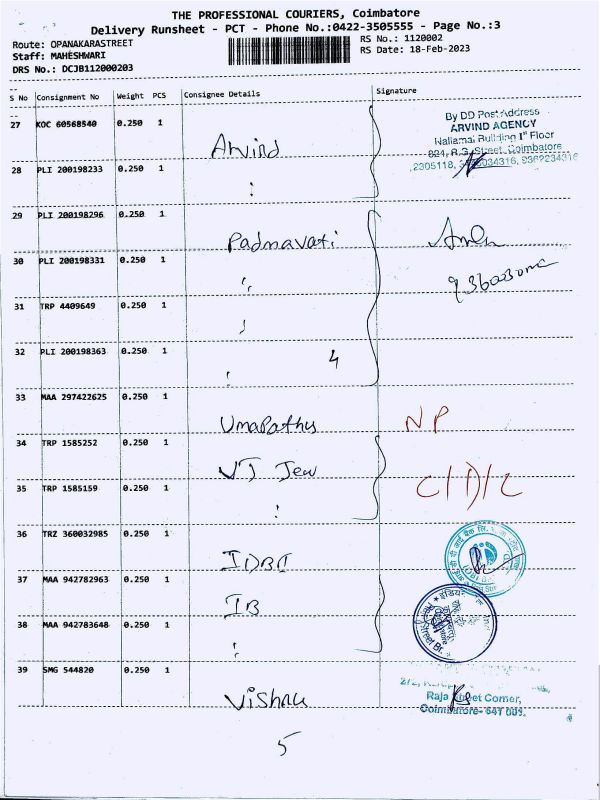 THE PROFESSIONAL COURIERS, Coimbatore
Delivery Runsheet - PCT - Phone No.:0422-3505555 - Page No.:3
Route: OPANAKARASTREET
RS No.: 1120002
Staff: MAHESHWARI
RS Date: 18-Feb-2023
DRS No.: DCJB112000203
S No Consignment No Weight PCS Consignee Details Signature
27 KOC 60568540 0.250 1
Arvind
By DD Post Address
ARVIND AGENCY
1st Floor
824, R.G. Street, Coimbatore
28 PLI 200198233 0.250 1
:
29 PLI 200198296 0.250 1
Padmavati
30 PLI 200198331 0.250 1
"
31 TRP 4409649 0.250 1
32 PLI 200198363 0.250 1
4
33 MAA 297422625 0.250 1
Umapathy NP
34 TRP 1585252 0.250 1
VJ Jew
C/D/C
35 TRP 1585159 0.250 1
:
36 TRZ 360032985 0.250 1
IDBI
37 MAA 942782963 0.250 1
IB
38 MAA 942783648 0.250 1
39 SMG 544820 0.250 1
Vishnu
Raja Street Corner,
Coimbatore- 641 001.
5